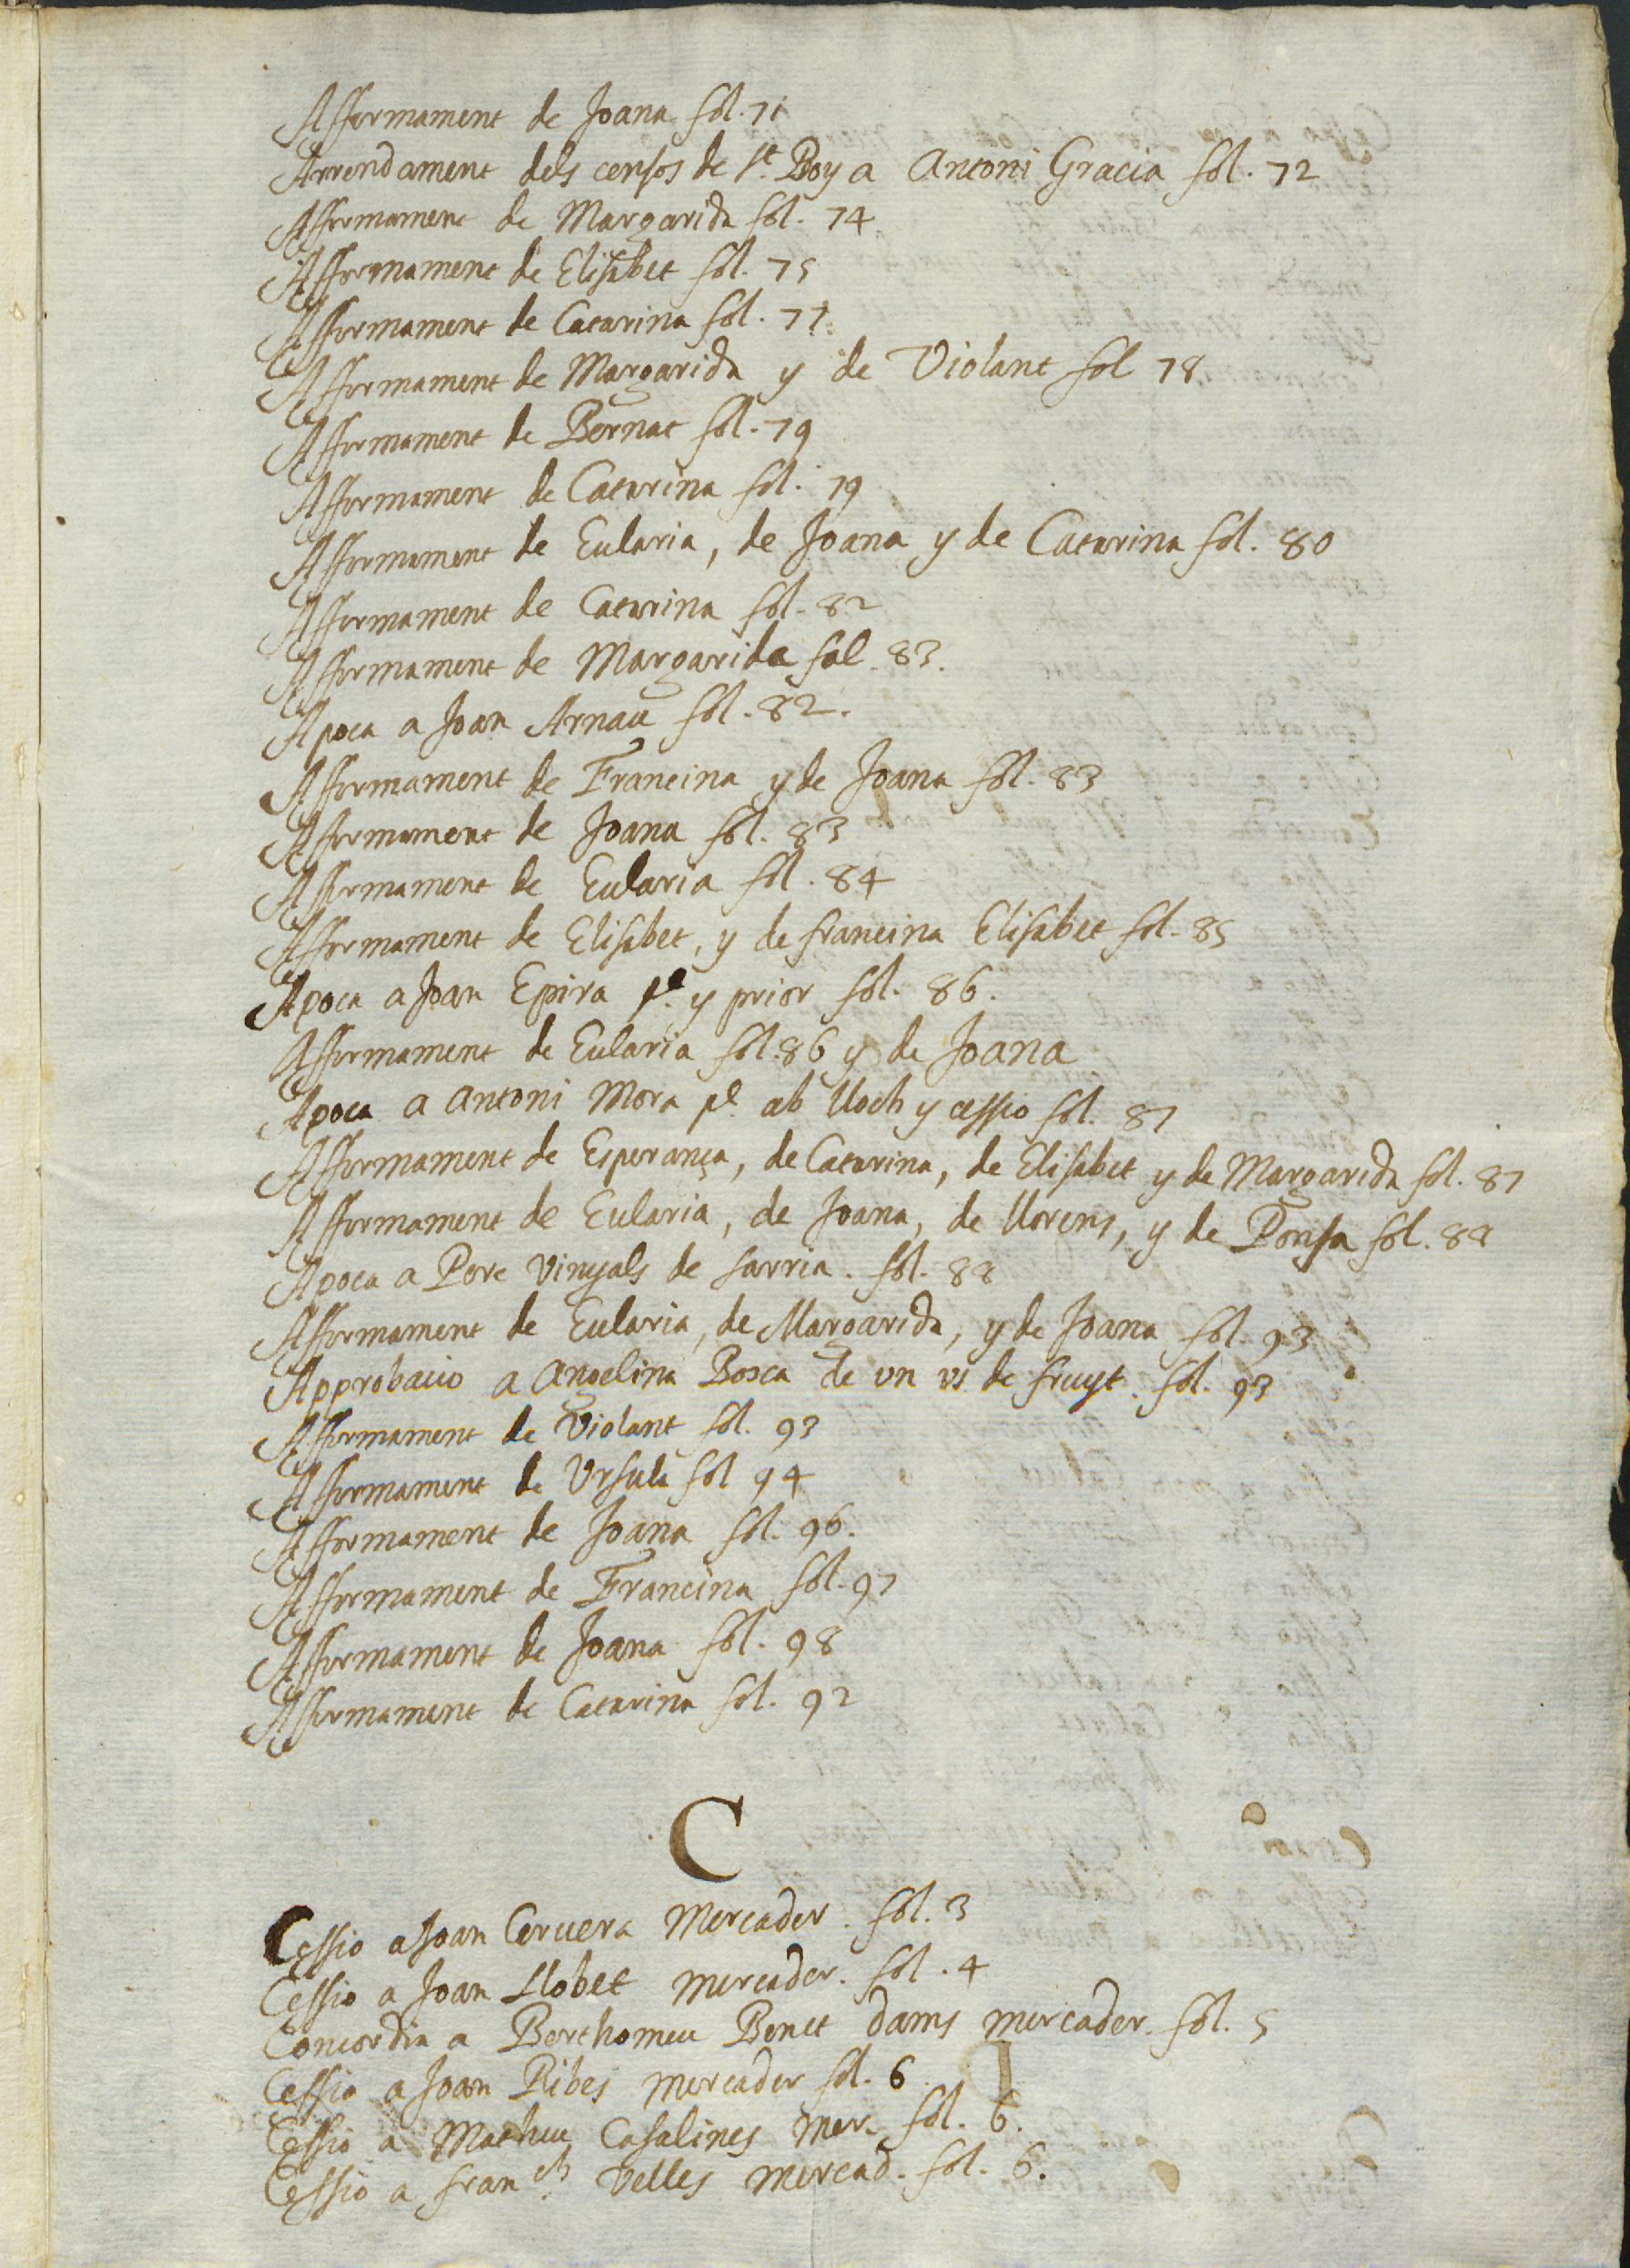 Affermament de Joana fol. 71
Arrendament dels censos de St. Boy a Antoni Gracia fol. 72
Affermament de Margarida fol. 74
Affermament de Elisabet fol. 75
Affermament de Catarina fol. 77
Affermament de Margarida y de Violant fol 78
Affermament de Bernat fol. 79
Affermament de Catarina fol. 79
Affermament de Eularia, de Joana y de Catarina fol. 80
Affermament de Catarina fol. 82
Affermament de Margarida fol. 83.
Apoca a Joan Arnau fol. 82.
Affermament de Francina y de Joana fol. 83
Affermament de Joana fol. 83
Affermament de Eularia fol. 84
Affermament de Elisabet, y de francina Elisabet fol. 85
Apoca a Joan Epira pe. y prior fol. 86.
Affermament de Eularia fol. 86 y de Joana
Apoca a Antoni Mora pe. ab lloch y cessio fol. 87
Affermament de Esperança, de Catarina, de Elisabet y de Margarida fol. 87
Affermament de Eularia, de Joana, de llorens, y de Ponsa fol. 88
Apoca a Pere Vinyals de sarria. fol. 88
Affermament de Eularia, de Margarida, y de Joana fol. 93
Approbacio a Angelina Bosca de un us de fruyt. fol. 93
Affermament de Violant fol. 93
Affermament de Ursula fol 94
Affermament de Joana fol. 96.
Affermament de Francina fol. 97
Affermament de Joana fol. 98
Affermament de Catarina fol. 92
C
Cessio a Joan Cervera Mercader. fol. 3
Cessio a Joan Llobet mercader. fol. 4
Concordia a Berthomeu Benet dams mercader. fol. 5
Cessio a Joan Ribes mercader fol. 6
Cessio a Matheu Casalines Mer. fol. 6.
Cessio a franch. Velles mercad. fol. 6.